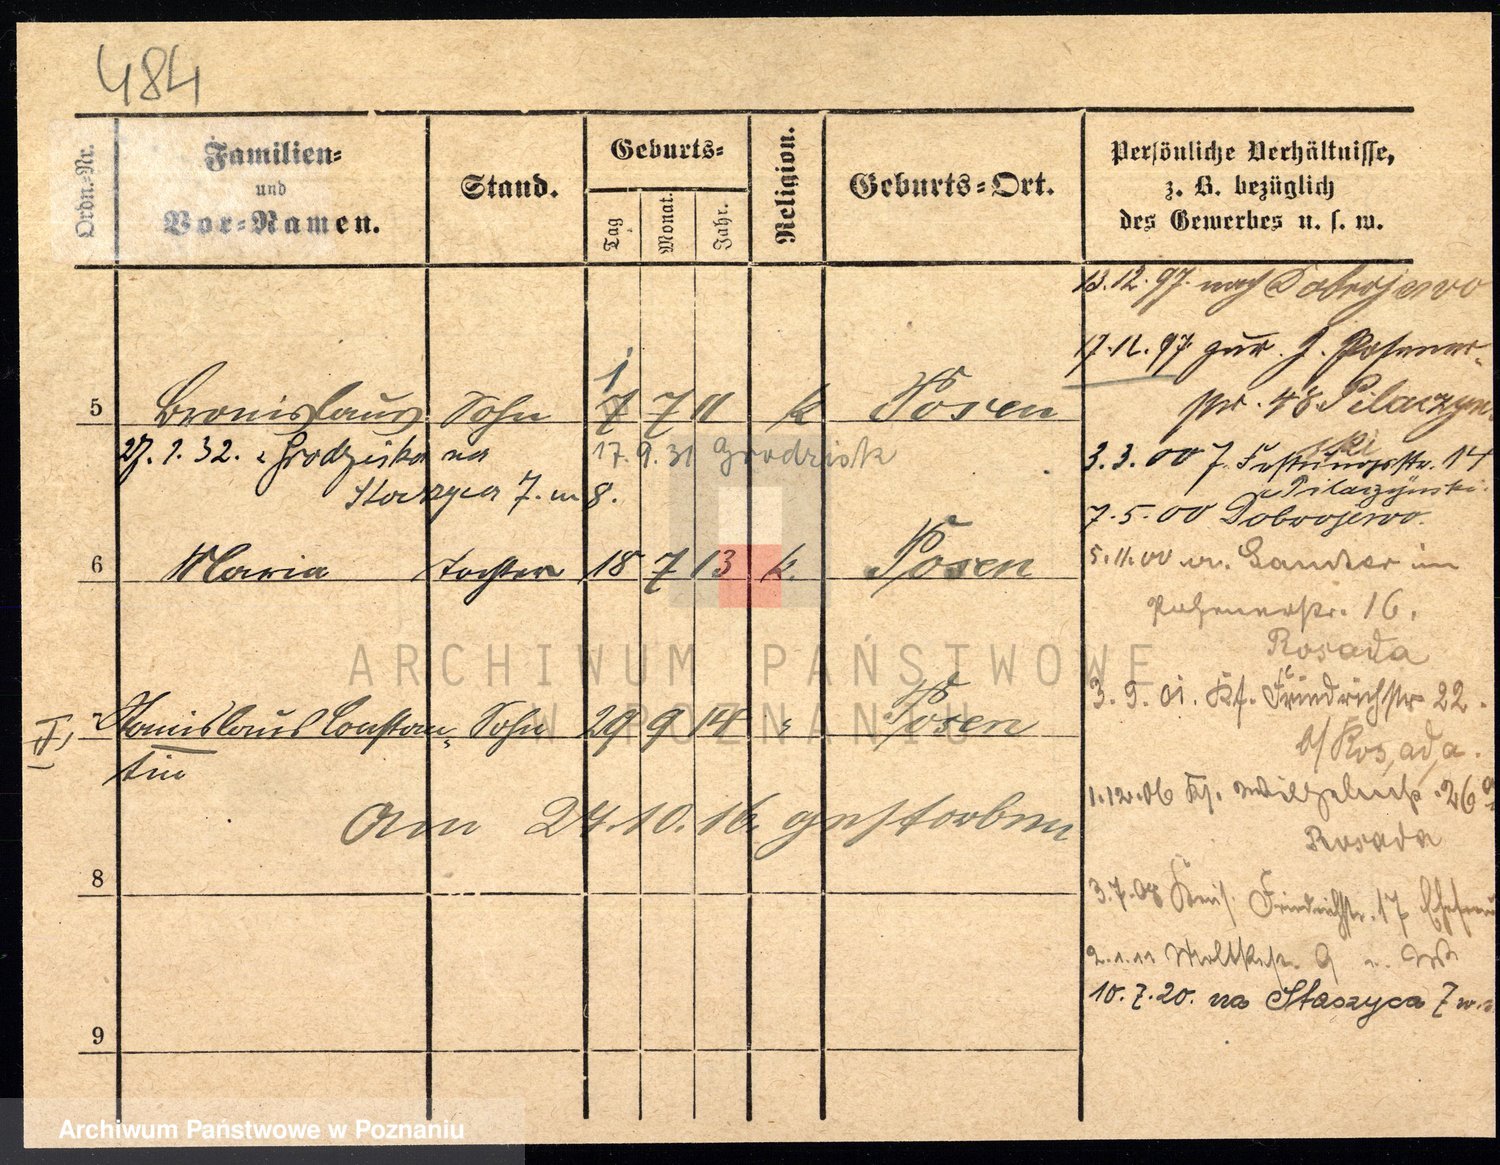 484
Ordn.-Nr.
Familien-
und
Vor-Namen.
Stand.
Geburts-
Tag
Monat.
Jahr.
Religion.
Geburts-Ort.
Persönliche Verhältnisse,
z. B. bezüglich
des Gewerbes u. s. w.
13.12.97. nach Dobrojewo
17.12.97 zur. J. Posener-
str. 48 Pilaczyn
ski
1
5 Bronislaus Sohn 7 7 11 k Posen
27.1.32. z Grodziska na 17.9.31 Grodzisk
Staszyca 7. m 8.
3.3.00 J. Festungsstr. 14
Pilaczynski
7.5.00 Dobrojewo.
6 Maria Tochter 18 7 13 k. Posen
5.11.00 v. in
Posenerstr. 16.
Rosada
3.9.01. Kf. Friedrichstr 22.
b/ Rosada.
II, 7 Stanislaus Constan- Sohn 29 9 14 " Posen
tin
1.12.06 Kf. 26
Rosada
Am 24.10.16. gestorben
8
3.7.08 Friedrichstr. 17 Ehefrau
2.1.11 Moltkestr. 9
10.7.20. na Staszyca 7
9
ARCHIWUM PAŃSTWOWE
W POZNANIU
Archiwum Państwowe w Poznaniu